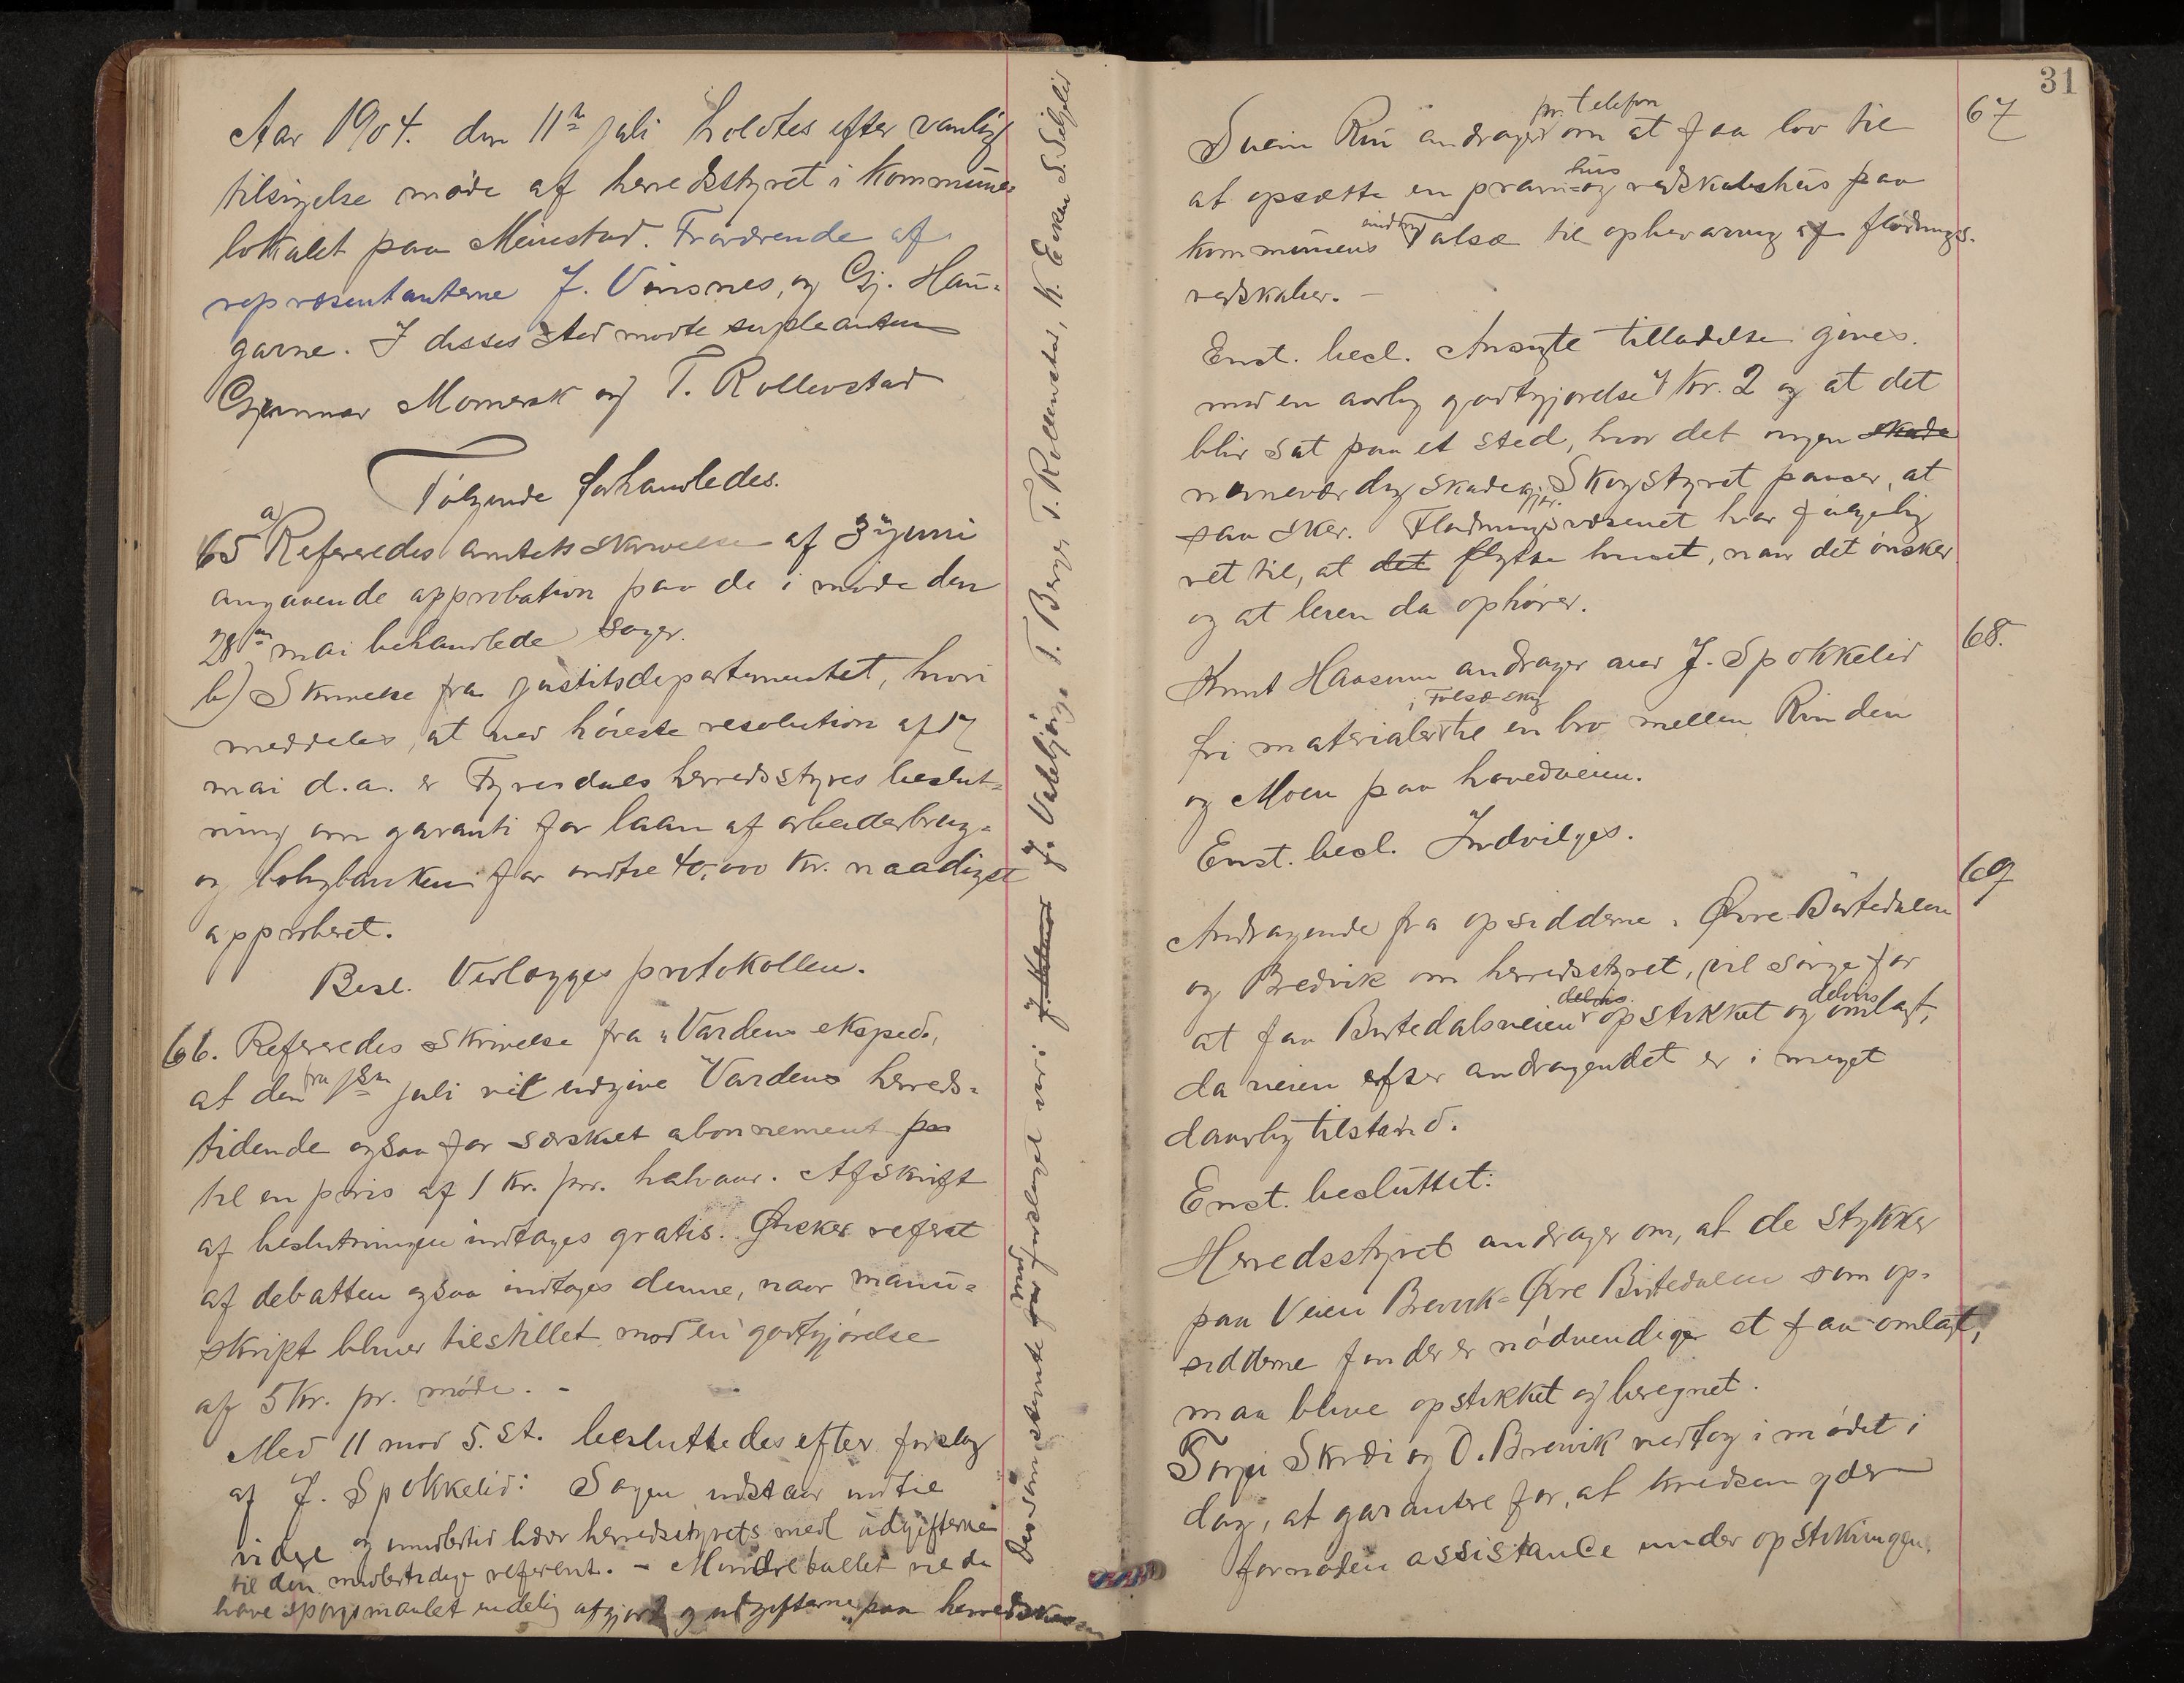 Aar 1904. den 11te juli holdtes efter vanlig
tilsigelse møde af herredsstyret i kommune-
lokalet paa Meinstad. Fraværende af
repræsentanterne J. Vinsnes, og Gj. Hau-
garne. I disses sted mødte supleanten
Gunnar Momrak og T. Rollevstad
Følgende forhandledes.
65 a) Refereredes amtets skrivelse af 3 juni
angaaende approbation paa de i møde den
28de mai behandlede sager.
b) Skrivelse fra justitsdepartementet, hvori
meddeles, at ved høieste resolution af 17
mai d.a. er Fyresdals herredsstyres beslut-
ning om garanti for laan af arbeiderbrug-
og boligbanken for indtil 40,000 Kr. naadigst
approberet.
Besl. Vedlægges protokollen.
66. Refereredes skrivelse fra "Varden"s eksped.,
at den fra 1ste juli vil udgive Vardens herreds-
tidende ogsaa for særskilt abonnement paa
til en pris af 1 Kr. pr. halvaar. Afskrift
af beslutningen indtages gratis. Ønskes referat
af debatten ogsaa indtages denne, naar manu-
skript bliver tilstillet mod en godtgjørelse
af 5 Kr. pr. møde. -
Med 11 mod 5. st. besluttedes efter forslag
af J. Spokkelid: Sagen udstaar indtil
videre og imidlertid bærer herredsstyrets medl udgifterne
til den midlertidige referent. - Mindretallet vil da
have spørgsmaalet endelig afgjort og udgifterne paa herredskassen
De som stemte for mod forslaget var: J. Veum J. Vatsbjørg T. Berge T. Rollevstad, K. Eiken S. Seljelid
31
67
Svein Rui andrager pr. telefon om at faa lov til
at opsætte en pramhus og redskabshus paa
kommunens Talsæ til opbevaring af flødnings-
redskaber. -
Enst. besl. Ansøgte tilladelse gives.
mod en aarlig godtgjørelse af Kr. 2 og at det
blir sat paa et sted, hvor det ingen skade
nævneværdig skade gjør. Skogstyret passer, at
saa sker. Flødningsvæsenet har følgelig
ret til, at det flytte huset, naar det ønsker
og at leien da ophører.
68.
Knut Haasum andrager ved J. Spokkelid
fri materialer i Folsæ skog til en bro mellem Rinden
og Moen paa hovedveien.
Enst. besl. Indvilges.
69
Andragende fra opsidderne i Øvre Birtedalen
og Bredvik om herredsstyret, vil sørge for
at faa Birtedalsveien delvis opstikket og delvis omlagt,
da veien efter andragendet er i meget
daarlig tilstand.
Enst. besluttet:
Herredsstyret andrager om, at de stykker
paa Veien Brevik-Øvre Birtedalen som op-
sidderne finder er nødvendiger at faa omlagt,
maa blive opstikket og beregnet.
Torgei Skrædi og O. Brevik vedtog i mødet i
dag, at garantere for, at kredsen yder
fornøden assistance under opstikningen.